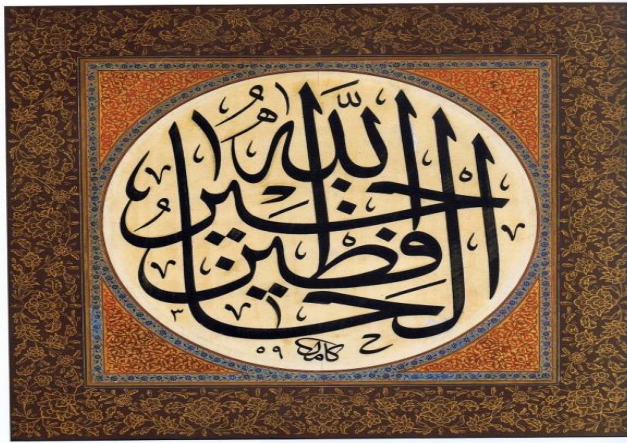 الله خير الحافظين
كامل
٥٩